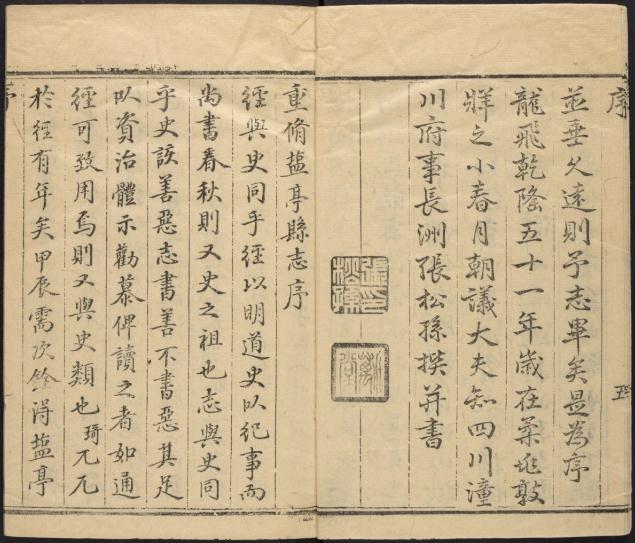 序
並垂久遠則予志畢矣是為序
龍飛乾隆五十一年歲在柔兆敦
牂之小春月朝議大夫知四川潼
川府事長洲張松孫撰并書
張印松孫
五
重脩鹽亭縣志序
經與史同乎經以明道史以紀事而
尚書春秋則又史之祖也志與史同
乎史談善惡志書善不書惡其足
以資治體示勸慕俾讀之者如通
經可致用焉則又與史類也琦兀兀
於經有年矣甲辰需次銓得鹽亭
序